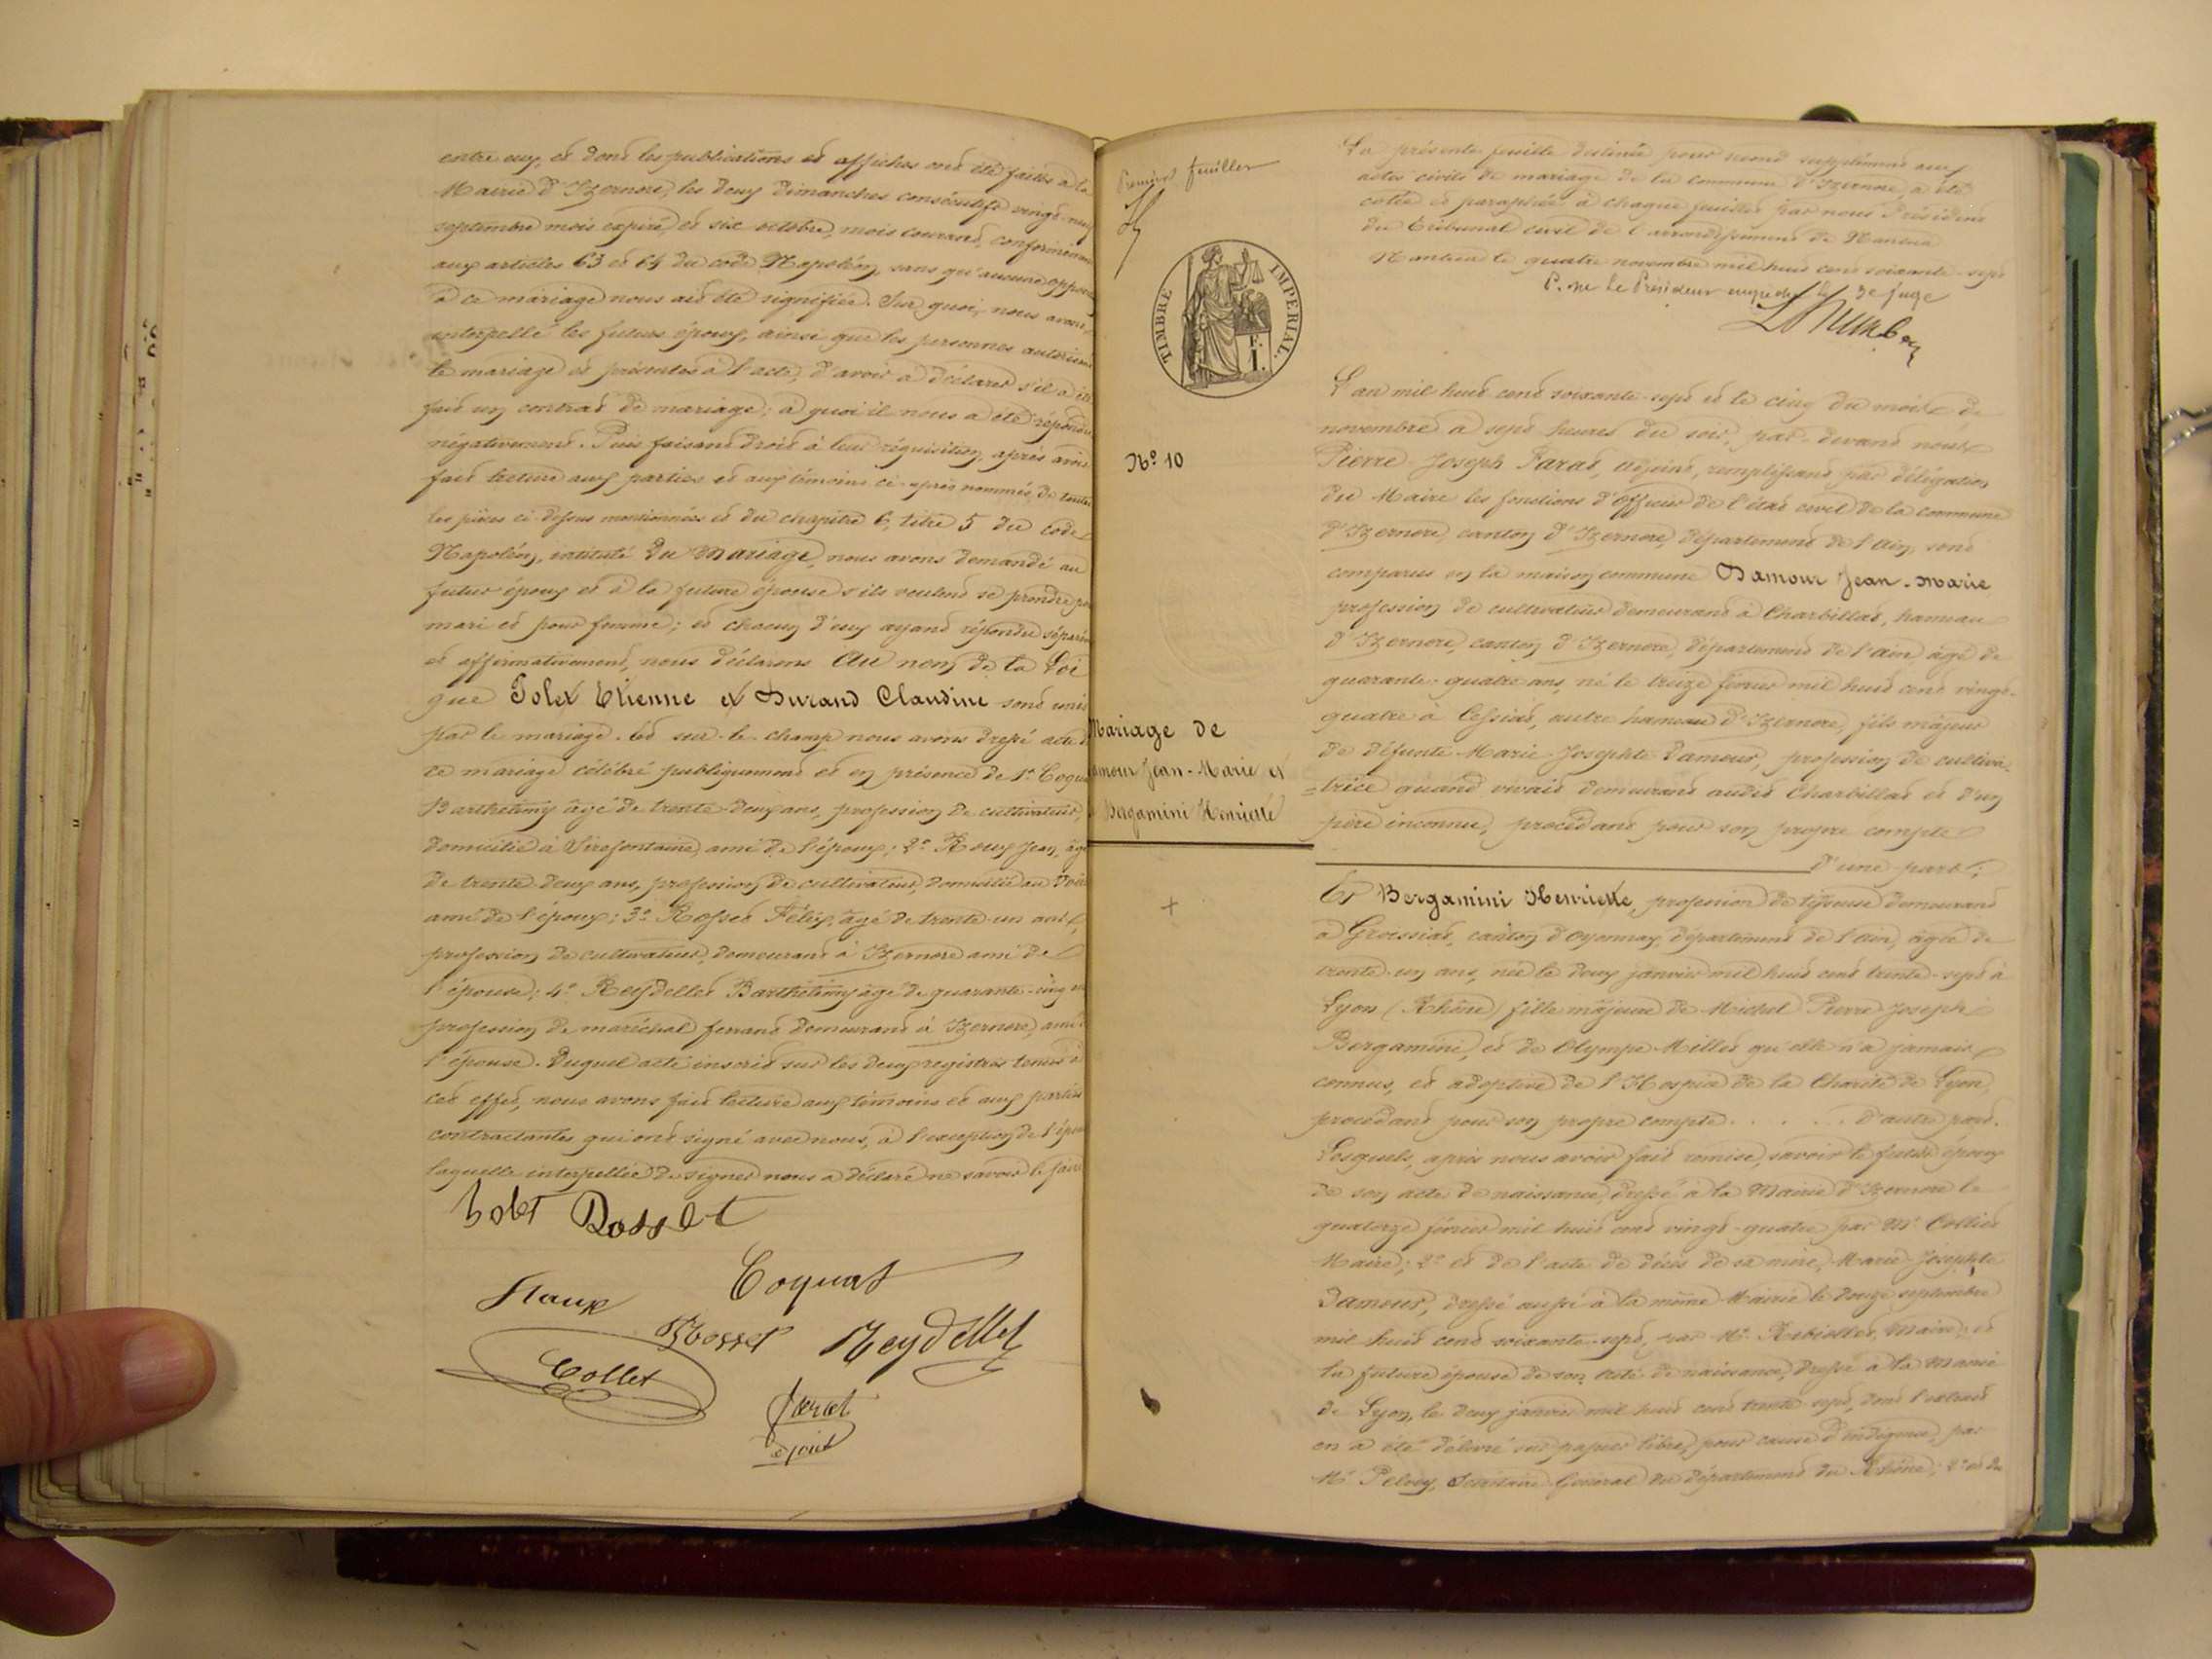 entre eux, et dont les publications et affiches ont été faites à la
Mairie d'Izernore, les deux dimanches consécutifs vingt-neuf
septembre mois expiré, et six octobre, mois courant, conformément
aux articles 63 et 64 du code Napoléon, sans qu'aucune
à ce mariage nous ait été signifiée. Sur quoi, nous avons
interpellé les futurs époux, ainsi que les personnes
le mariage et présentes à l'acte, d'avoir à déclarer s'il a été
fait un contrat de mariage; à quoi il nous a été répondu
négativement. Puis faisant droit à leur réquisition, après avoir
fait lecture aux parties et aux témoins ci-après nommés, de toutes
les pièces ci-dessus mentionnées et du chapitre 6, titre 5 du code
Napoléon, intitulé Du Mariage, nous avons demandé au
futur époux et à la future épouse s'ils veulent se prendre pour
mari et pour femme; et chacun d'eux ayant répondu
et affirmativement, nous déclarons Au nom de la Loi
que Jolet Etienne et Durand Claudine sont unis
par le mariage. Et sur-le-champ nous avons dressé acte
ce mariage célébré publiquement et en présence de 1º
Barthélemy âgé de trente-deux ans, profession de cultivateur,
domicilié à Sirefontaine, ami de l'époux; 2º Roux Jean, âgé
de trente-deux ans, profession de cultivateur, domicilié au
ami de l'époux; 3º Rosset Félix, âgé de trente-un ans,
profession de cultivateur, demeurant à Izernore ami de
l'épouse; 4º Reydellet Barthélemy âgé de quarante-cinq
profession de maréchal ferrant demeurant à Izernore, ami
l'épouse. Duquel acte inscrit sur les deux registres tenus à
cet effet, nous avons fait lecture aux témoins et aux parties
contractantes qui ont signé avec nous, à l'exception de
laquelle interpellée de signer nous a déclaré ne savoir le faire
Rosset
Coquat
Rosset Reydellet
Collet
Paret
adjoint
Premier feuillet
TIMBRE IMPERIAL.
F. I.
Nº 10
Mariage de
amour Jean-Marie et
Bergamini Henriette
La présente feuille destinée pour second supplément aux
actes civils de mariage de la commune d'Izernore, a été
cotée et paraphée à chaque feuillet par nous Président
du Tribunal civil de l'arrondissement de Nantua
Nantua le quatre novembre mil huit cent soixante-sept
P. Mr le Président empêché le juge
L'an mil huit cent soixante-sept et le cinq du mois de
novembre à sept heures du soir, par-devant nous
Pierre Joseph Paret, adjoint, remplissant par délégation
du Maire les fonctions d'Officier de l'état civil de la commune
d'Izernore, canton d'Izernore, département de l'Ain, sont
comparus en la maison commune Damour Jean-Marie
profession de cultivateur demeurant à Charbillat, hameau
d'Izernore, canton d'Izernore, département de l'ain, âgé de
quarante-quatre ans, né le treize février mil huit cent vingt-
quatre à Cessiat, autre hameau d'Izernore, fils majeur
de défunte Marie-Josephte Damour, profession de cultiva-
=trice quand vivait demeurant audit Charbillat et d'un
père inconnu, procédant pour son propre compte
d'une part;
Et Bergamini Henriette, profession de tisseuse demeurant
à Groissiat, canton d'Oyonnax, département de l'ain, âgée de
trente-un ans, née le deux janvier mil huit cent trente-sept à
Lyon (Rhône) fille majeure de Michel Pierre Joseph
Bergamini, et de Olympe Millet qu'elle n'a jamais
connus, et adoptive de l'Hospice de la Charité de Lyon,
procédant pour son propre compte . . . . . . d'autre part.
Lesquels, après nous avoir fait remise, savoir le futur époux
de son acte de naissance, dressé à la Mairie d'Izernore le
quatorze février mil huit cent vingt-quatre par Mr Collet
Maire; 2º et de l'acte de décès de sa mère, Marie-Josephte
Damour, dressé aussi à la même Mairie le douze septembre
mil huit cent soixante-sept, par Mr Maire; et
la future épouse de son acte de naissance, dressé à la Mairie
de Lyon, le deux janvier mil huit cent trente-sept, dont l'extrait
en a été délivré sur papier libre, pour cause d'indigence, par
Mr Secrétaire Général du département du Rhône; 2º et de